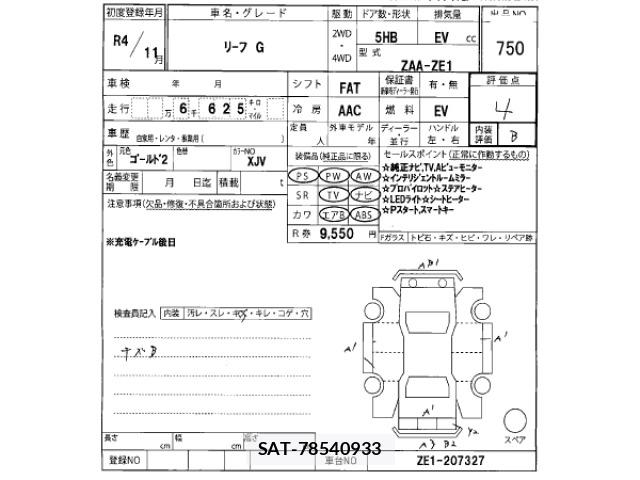 初度登録年月 車名・グレード 駆動 ドア数・形状 排気量 出品NO
R4/11月 リーフ G 2WD・4WD 5HB EV cc 750
型式 ZAA-ZE1
車検 年 月 シフト FAT 保証書 有・無 評価点 4
走行 万 6 千 625 キロ・マイル 冷房 AAC 燃料 EV
車歴 自家用・レンタ・事業用( ) 定員 人 外車モデル 年 ディーラー・並行 ハンドル 左・右 内装評価 B
外色 元色 ゴールド2 色替 カラーNO XJV
装備品(純正品に限る) セールスポイント(正常に作動するもの)
名義変更期限 月 日迄 積載 t
PS PW AW
SR TV ナビ
カワ エアB ABS
R券 9,550 円
☆純正ナビ,TV,Aビューモニター
☆インテリジェントルームミラー
☆プロパイロット☆ステアヒーター
☆LEDライト☆シートヒーター
☆Pスタートスマートキー
Fガラス トビ石・キズ・ヒビ・ワレ・リペア跡
注意事項(欠品・修復・不具合箇所および状態)
※充電ケーブル後日
検査員記入 内装 汚レ・スレ・キズ・キレ・コゲ・穴
キズB
AB1
A1
A1
A1
Y2
A3 B2
スペア
長さ cm 幅 cm 高さ cm
SAT-78540933
登録NO 車台NO ZE1-207327